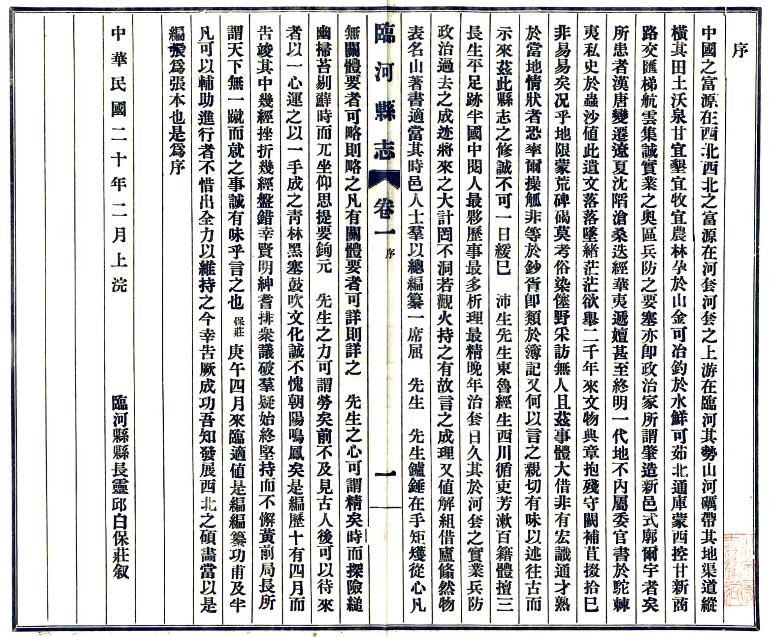 序
中國之富源在西北西北之富源在河套河套之上游在臨河其勢山河礪帶其地渠道縱
橫其田土沃泉甘宜墾宜牧宜農林孕於山金可冶鈞於水鮮可茹北通庫蒙西控甘新商
路交匯梯航雲集誠實業之奥區兵防之要塞亦卽政治家所謂肇造新邑式廓爾宇者矣
所患者漢唐變遷遼夏沈陷滄桑迭經華夷遞嬗甚至終明一代地不內屬委官書於駝棘
夷私史於蟲沙値此遺文落落墜緒茫茫欲舉二千年來文物典章抱殘守闕補苴掇拾已
非易易矣况乎地限蒙荒碑碣莫考俗染傖野采訪無人且茲事體大借非有宏識通才熟
於當地情狀者恐率爾操觚非等於鈔胥卽類於簿記又何以言之親切有味以述往古而
示來茲此縣志之修誠不可一日緩已 沛生先生東魯經生西川循吏芳漱百籍體擅三
長生平足跡半國中閱人最夥歷事最多析理最精晚年治套日久其於河套之實業兵防
政治過去之成迹將來之大計罔不洞若觀火持之有故言之成理又値解組借廬翛然物
表名山著書適當其時邑人士羣以總編纂一席屈 先生 先生鑪錘在手矩矱從心凡
臨河縣志 卷一 序 一
無關體要者可略則略之凡有關體要者可詳則詳之 先生之心可謂精矣時而探險縋
幽掃苔剔蘚時而兀坐仰思提要鉤元 先生之力可謂勞矣前不及見古人後可以待來
者以一心運之以一手成之靑林黑塞鼓吹文化誠不愧朝陽鳴鳳矣是編歷十有四月而
告竣其中幾經挫折幾經盤錯幸賢明紳耆排衆議破羣疑始終堅持而不懈黃前局長所
謂天下無一蹴而就之事誠有味乎言之也 保莊 庚午四月來臨適値是編編纂功甫及半
凡可以輔助進行者不惜出全力以維持之今幸告厥成功吾知發展西北之碩畫當以是
編爲張本也是爲序
中華民國二十年二月上浣 臨河縣縣長靈邱白保莊叙